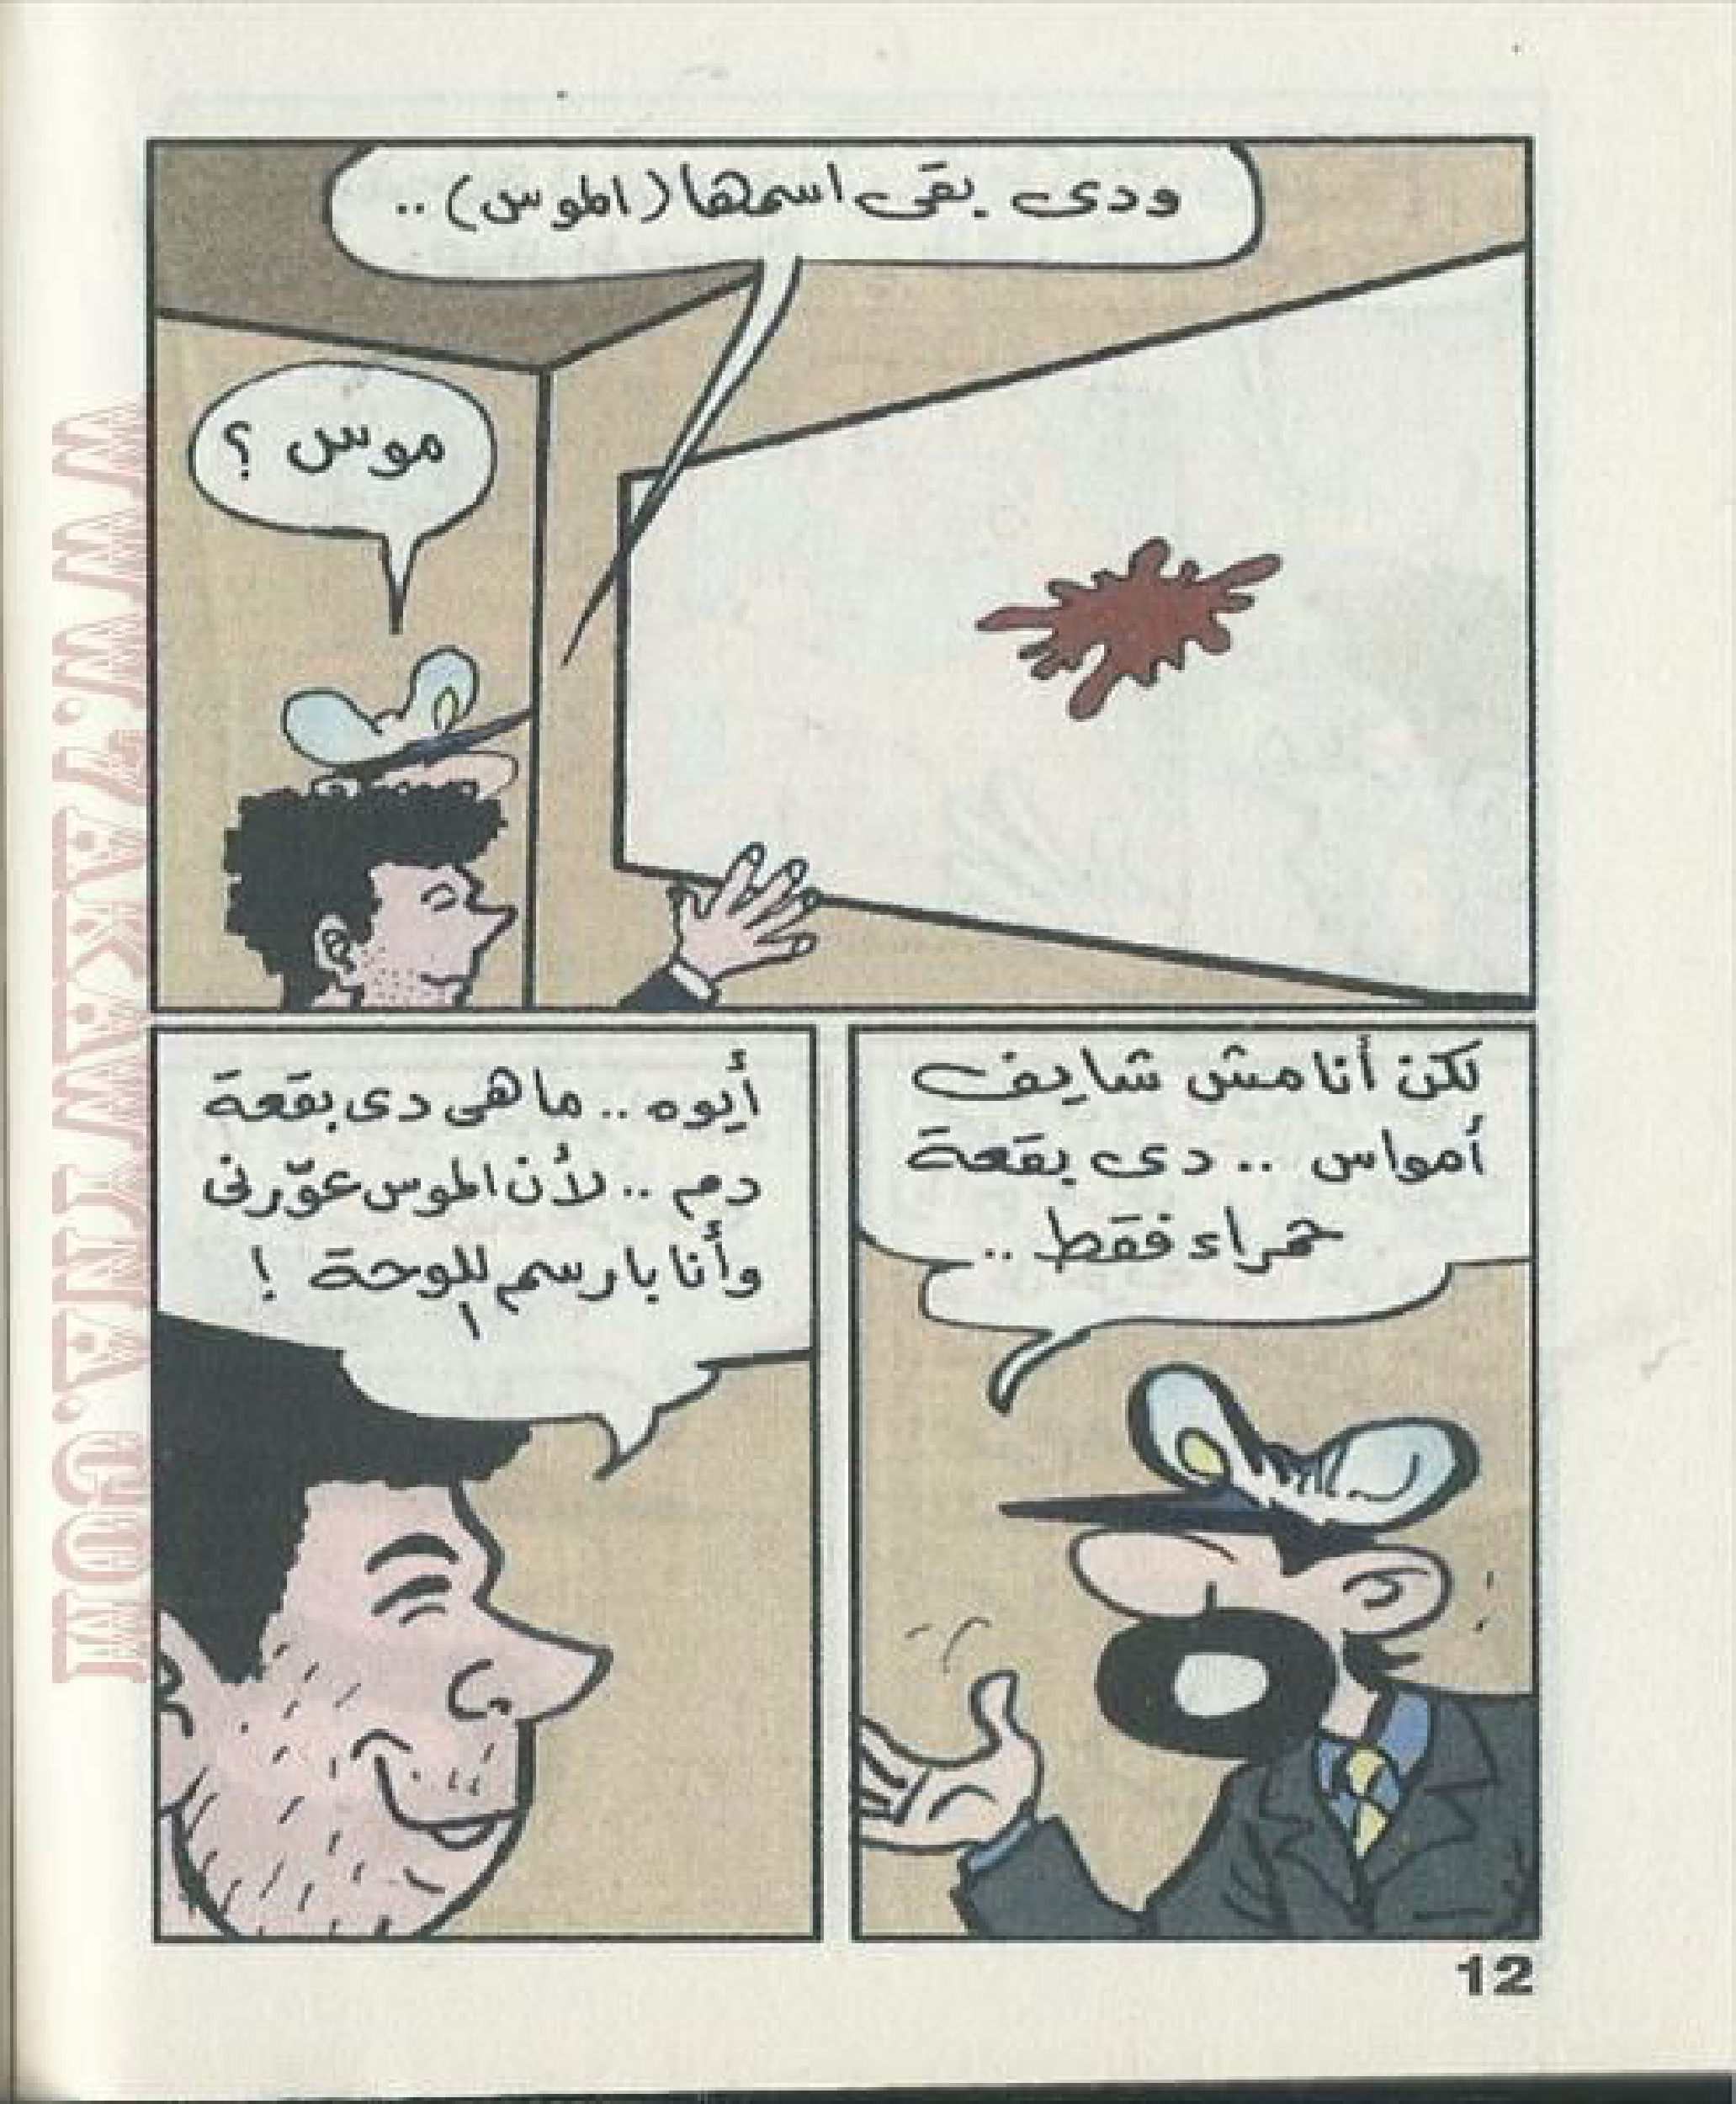 ودى بقى اسمها (الموس) ..
موس ؟
لكن أنا مش شايف
أمواس .. دى بقعة
حمراء فقط ..
أيوه .. ما هى دى بقعة
دم .. لأن الموس عوّرنى
وأنا بارسم اللوحة !
12
WWW.TAKAWTNA.COM